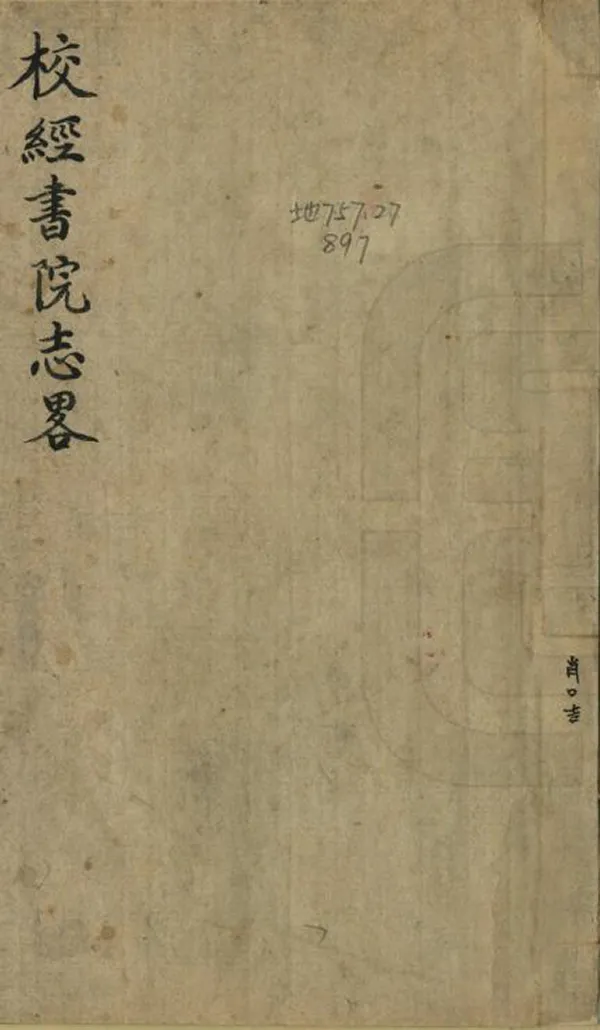 校經書院志畧
地757.27
897